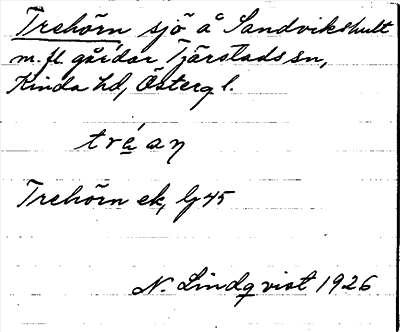 Trehörn sjö å Sandvikshult
m. fl. gårdar Tjärstads sn,
Kinda hd, Österg l.
Trehörn ek,
N. Lindqvist 1926